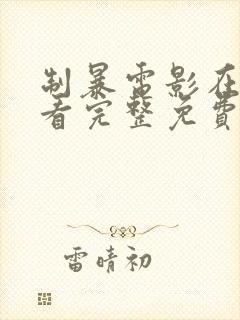 制暴電影在
看完整免費
雷晴初